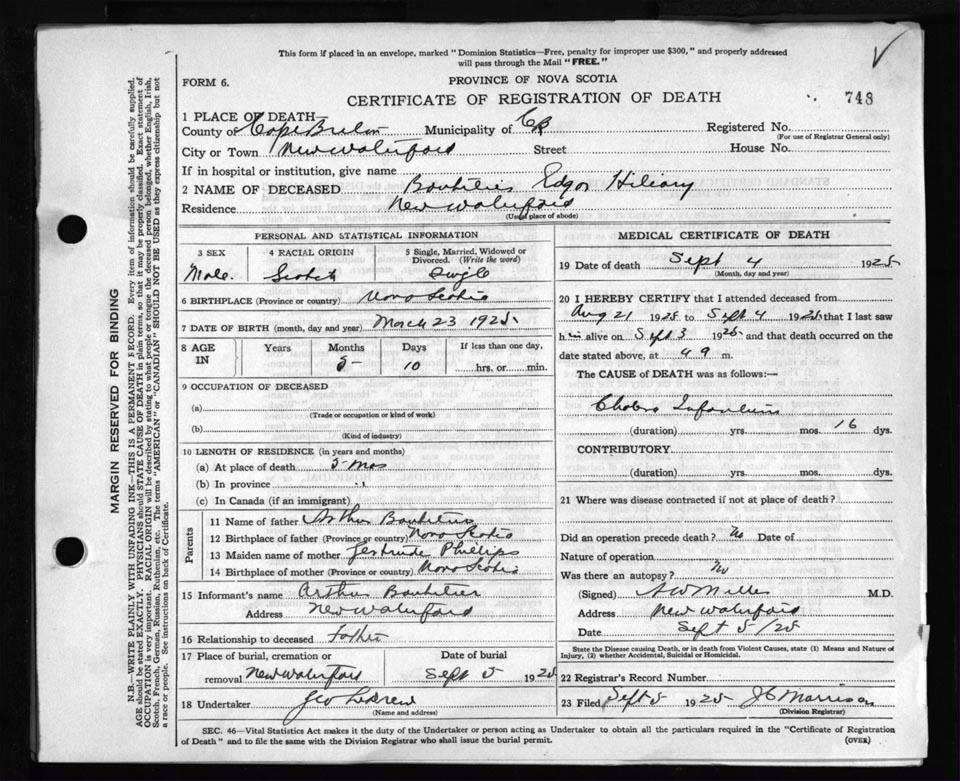 This form if placed in an envelope, marked "Dominion Statistics—Free, penalty for improper use $300," and properly addressed
will pass through the Mail "FREE."
FORM 6.
PROVINCE OF NOVA SCOTIA
CERTIFICATE OF REGISTRATION OF DEATH
748
1 PLACE OF DEATH—
County of Cape Breton Municipality of CB Registered No.
(For use of Registrar General only)
City or Town New Waterford Street House No.
If in hospital or institution, give name
2 NAME OF DECEASED Edgar Hiliary
Residence New Waterford
(Usual place of abode)
PERSONAL AND STATISTICAL INFORMATION
3 SEX 4 RACIAL ORIGIN 5 Single, Married, Widowed or
Divorced. (Write the word)
Male. Scotch Single
6 BIRTHPLACE (Province or country) Nova Scotia
7 DATE OF BIRTH (month, day and year) March 23 1925.
8 AGE IN Years Months Days If less than one day,
5 10 hrs. or min.
9 OCCUPATION OF DECEASED
(a)
(Trade or occupation or kind of work)
(b)
(Kind of industry)
10 LENGTH OF RESIDENCE (in years and months)
(a) At place of death 5 mos
(b) In province
(c) In Canada (if an immigrant)
Parents
11 Name of father Arthur
12 Birthplace of father (Province or country) Nova Scotia
13 Maiden name of mother Gertrude Phillips
14 Birthplace of mother (Province or country) Nova Scotia
15 Informant's name Arthur
Address New Waterford
16 Relationship to deceased Father
17 Place of burial, cremation or Date of burial
removal New Waterford Sept 5 1925
18 Undertaker Geo
(Name and address)
MEDICAL CERTIFICATE OF DEATH
19 Date of death Sept 4 1925
(Month, day and year)
20 I HEREBY CERTIFY that I attended deceased from
Aug 21 1925 to Sept 4 1925 that I last saw
him alive on Sept 3 1925 and that death occurred on the
date stated above, at 4 9 m.
The CAUSE of DEATH was as follows:—
Cholera Infantum
(duration) yrs. mos. 16 dys.
CONTRIBUTORY
(duration) yrs. mos. dys.
21 Where was disease contracted if not at place of death?
Did an operation precede death? No Date of
Nature of operation
Was there an autopsy? No
(Signed) A W Miller M.D.
Address New Waterford
Date Sept 5/25
State the Disease causing Death, or in death from Violent Causes, state (1) Means and Nature of
Injury, (2) whether Accidental, Suicidal or Homicidal.
22 Registrar's Record Number
23 Filed Sept 5 1925 J C Morrison
(Division Registrar)
SEC. 46—Vital Statistics Act makes it the duty of the Undertaker or person acting as Undertaker to obtain all the particulars required in the "Certificate of Registration
of Death" and to file the same with the Division Registrar who shall issue the burial permit. (OVER)
MARGIN RESERVED FOR BINDING
N.B.—WRITE PLAINLY WITH UNFADING INK—THIS IS A PERMANENT RECORD. Every item of information should be carefully supplied.
AGE should be stated EXACTLY. PHYSICIANS should STATE CAUSE OF DEATH in plain terms, so that it may be properly classified. Exact statement of
OCCUPATION is very important. RACIAL ORIGIN will be described by stating to what people or tongue the deceased person belonged, whether English, Irish,
Scotch, French, German, Russian, Ruthenian, etc. The terms "AMERICAN" or "CANADIAN" SHOULD NOT BE USED as they express citizenship but not
a race or people. See instructions on back of Certificate.